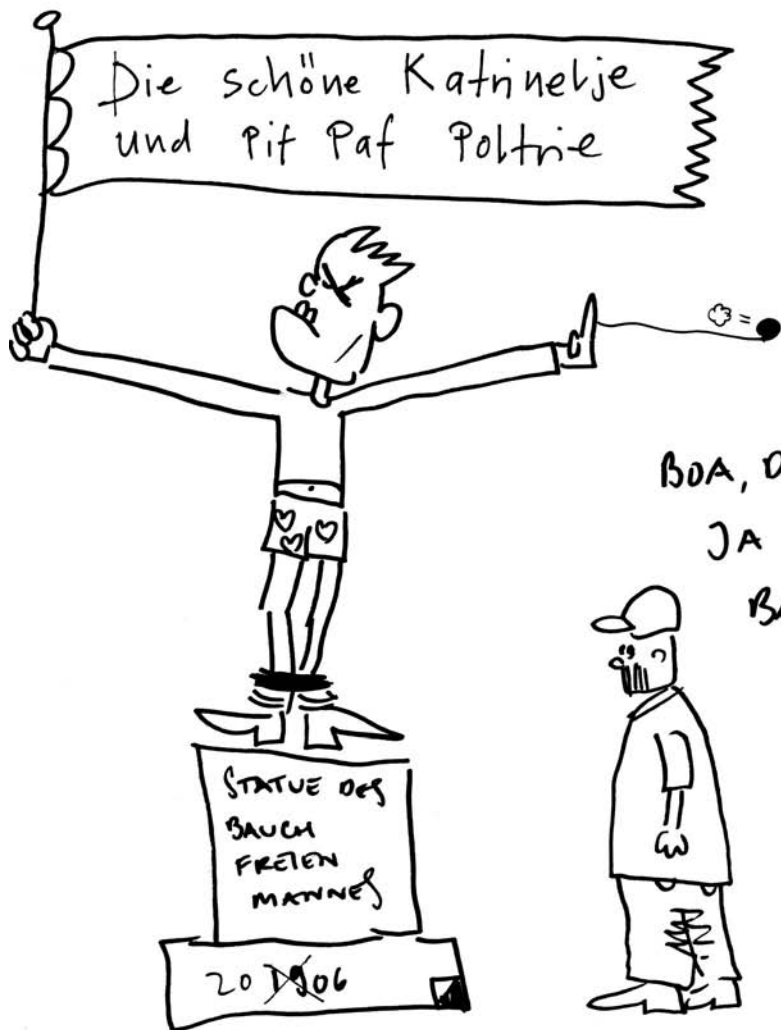 Die schöne Katrinelje
und Pif Paf Poltrie
BOA, D
JA
BA
STATUE DES
BAUCH
FREIEN
MANNES
20 06